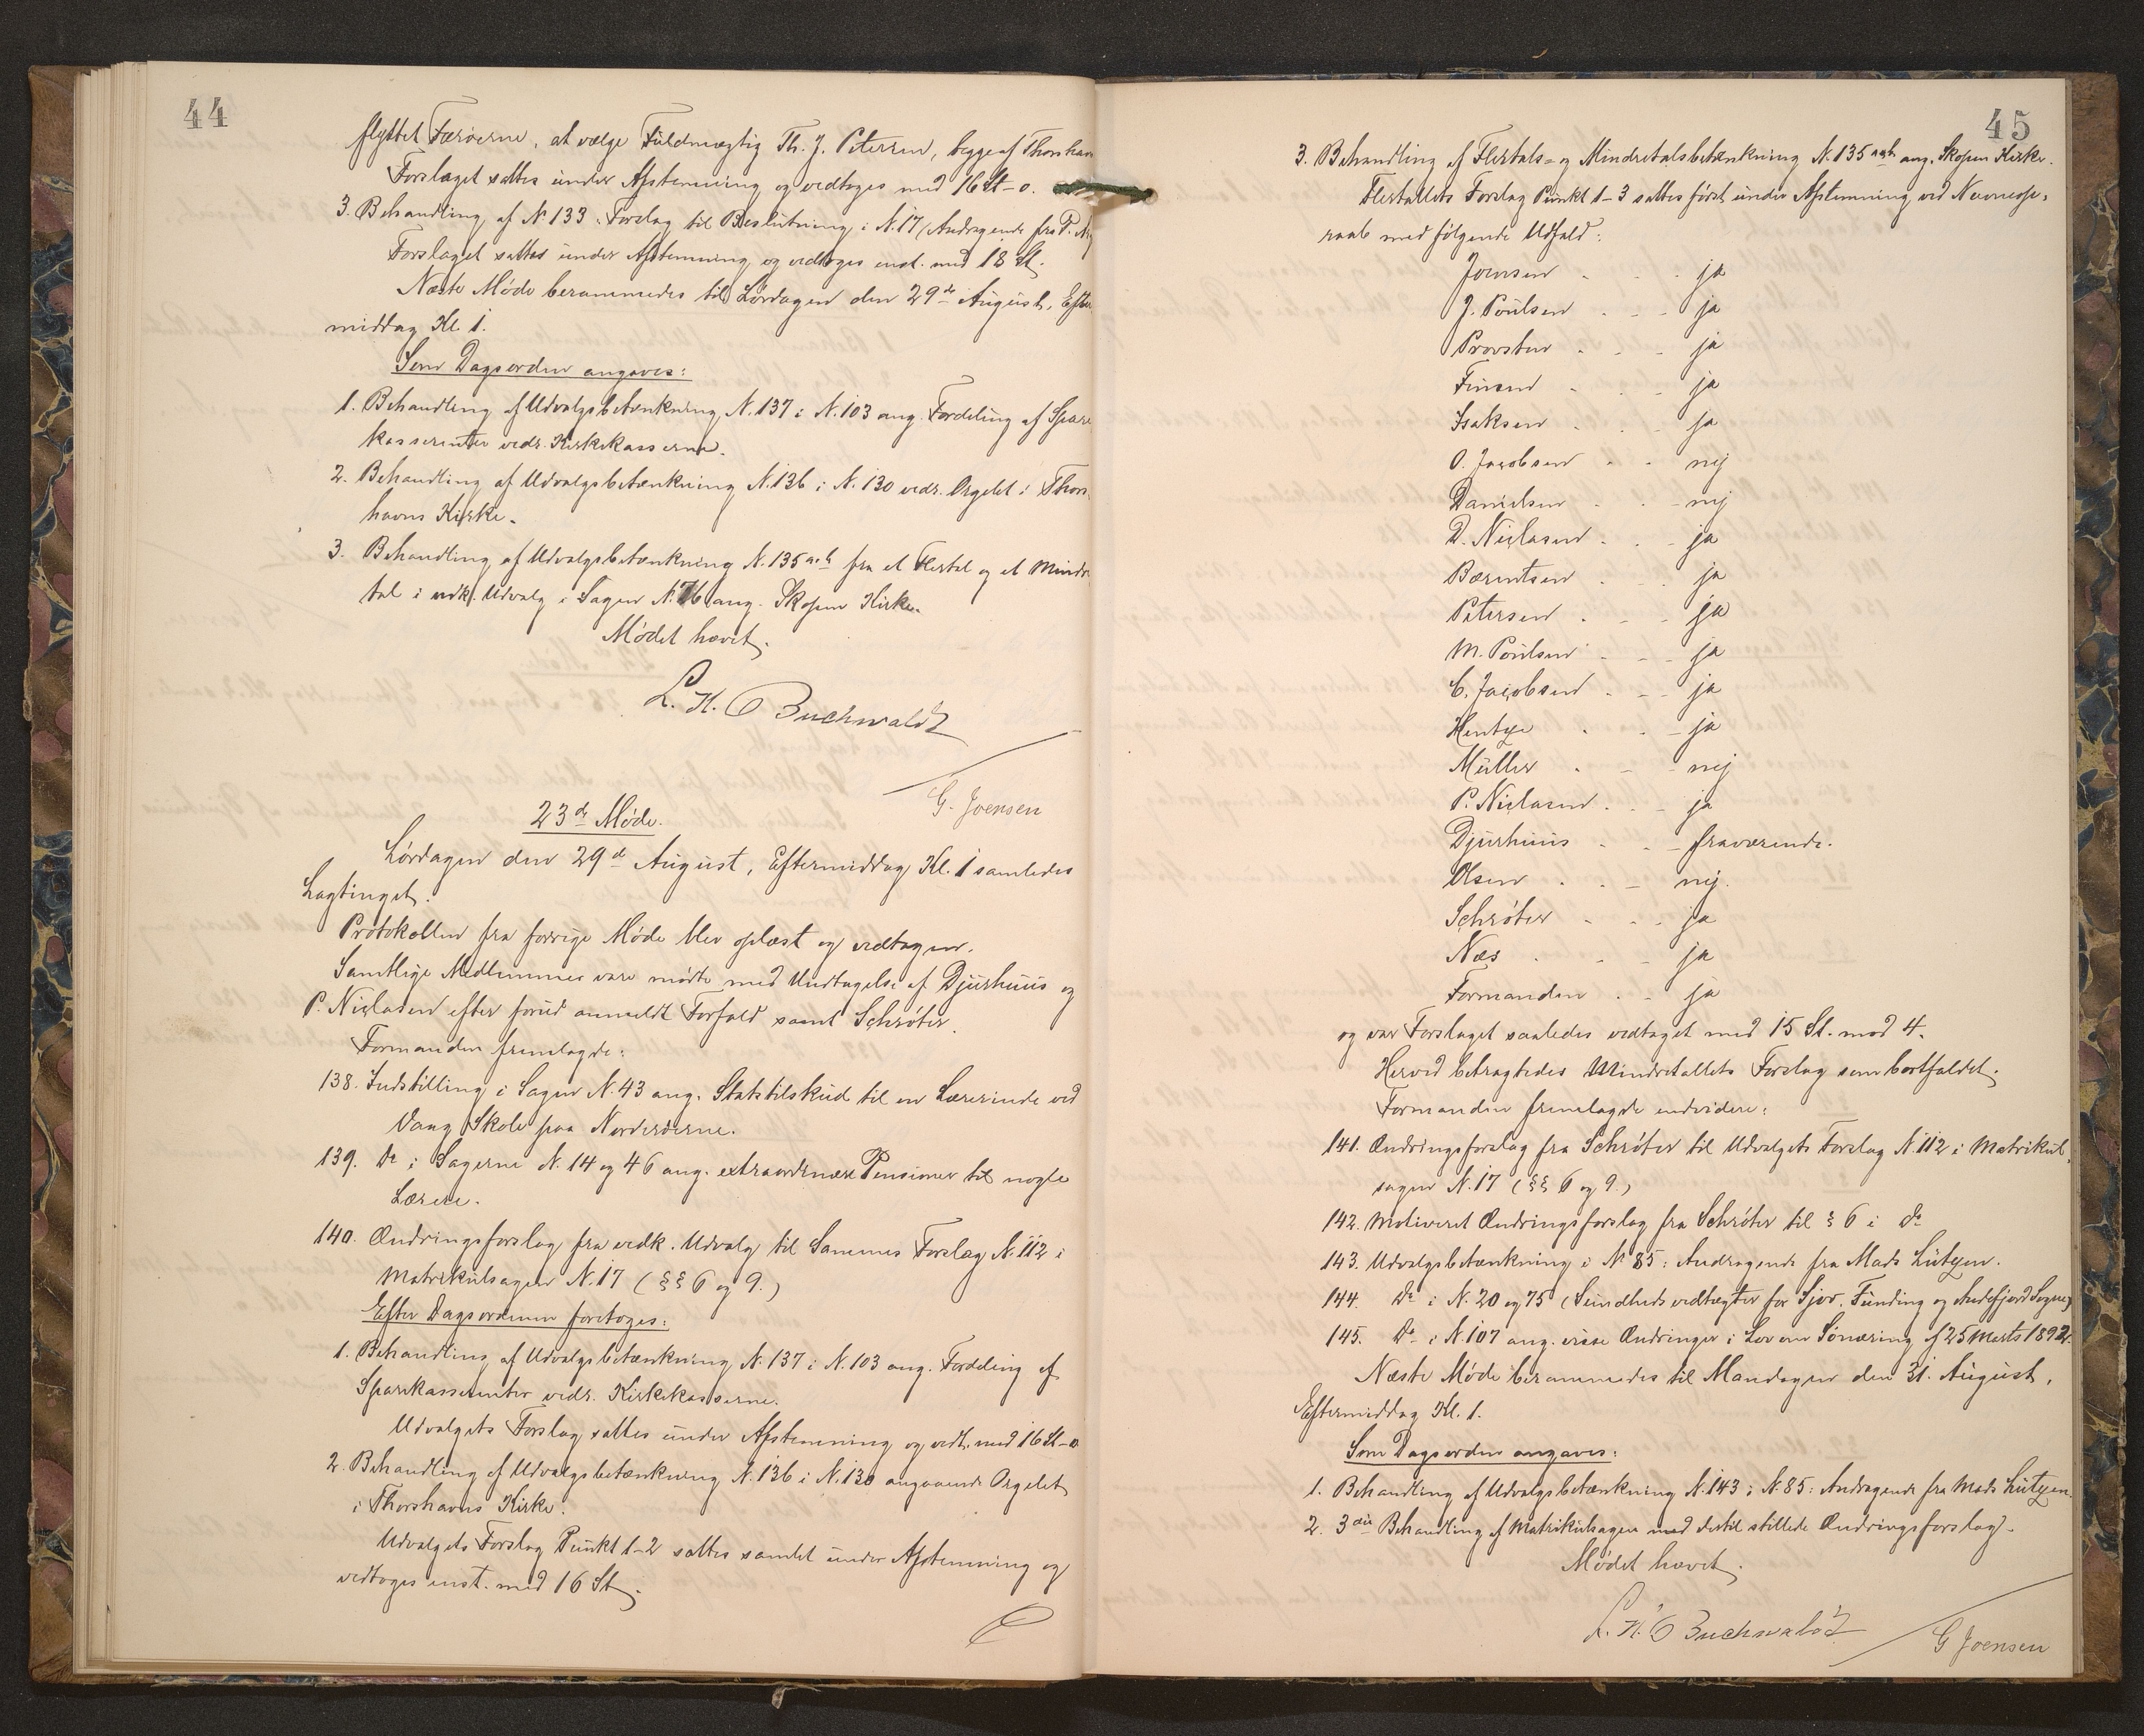 44
flyttet Færøerne, at vælge Fuldmægtig Th. J. Petersen, begge af Thorshavn
Forslaget sattes under Afstemning og vedtoges med 16 St-0.
3. Behandling af N. 133: Forslag til Beslutning i N. 17 (Andragende fra P.
Forslaget sattes under Afstemning og vedtoges enst. med 18 St.
Næste Møde berammedes til Lørdagen den 29de August, Efter
middag Kl. 1.
Som Dagsorden angaves:
1. Behandling af Udvalgsbetænkning N. 137 i N. 103 ang. Fordeling af Spare
kasserenter vedr. Kirkekasserne.
2. Behandling af Udvalgsbetænkning N. 136 i N. 130 vedr. Orgelet i Thors
havns Kirke.
3. Behandling af Udvalgsbetænkning N. 135 a & b fra et Flertal og et Mindre
tal i vedk. Udvalg i Sagen N. 76 ang. Skopun Kirke.
Mødet hævet.
L. H. C Buchwaldt
G. Joensen
23de Møde.
Lørdagen den 29de August, Eftermiddag Kl. 1 samledes
Lagtinget.
Protokollen fra forrige Møde blev oplæst og vedtagen.
Samtlige Medlemmer vare mødte med Undtagelse af Djurhuus og
P. Niclasen efter forud anmeldt Forfald samt Schrøter.
Formanden fremlagde:
138. Indstilling i Sagen N. 43 ang. Statstilskud til en Lærerinde ved
Vaag Skole paa Norderøerne.
139. Do i Sagerne N. 14 og 46 ang. extraordinære Pensioner til nogle
Lærere.
140. Ændringsforslag fra vedk. Udvalg til Sammes Forslag N. 112 i
Matrikulsagen N. 17 (§§ 6 og 9.)
Efter Dagsordenen foretoges:
1. Behandling af Udvalgsbetænkning N. 137 i N. 103 ang. Fordeling af
Sparekasserenter vedr. Kirkekasserne.
Udvalgets Forslag sattes under Afstemning og vedt. med 16 St-0
2. Behandling af Udvalgsbetænkning N. 136 i N. 130 angaaende Orgelet
i Thorshavns Kirke.
Udvalgets Forslag Punkt 1-2 sattes samlet under Afstemning og
vedtoges enst. med 16 St.
45
3. Behandling af Flertals- og Mindretalsbetænkning N. 135 a & b ang. Skopun Kirke.
Flertallets Forslag Punkt 1-3 sattes først under Afstemning ved Navneop-
raab med følgende Udfald:
Joensen - - - ja
J. Poulsen - - - ja
Provsten - - - ja
Finsen - - - ja
Isaksen - - - ja
O. Jacobsen - - nej
Danielsen - - - nej
D. Niclasen - - - ja
Bærentsen - - ja
Petersen - - - ja
M. Poulsen - - - ja
C. Jacobsen - - - ja
Hentze - - - ja
Müller - - - nej
P. Niclasen - - - ja
Djurhuus - - - fraværende.
Olsen - - - nej.
Schrøter - - - ja
Næs - - - ja
Formanden - - ja
og var Forslaget saaledes vedtaget med 15 St. mod 4.
Herved betragtedes Mindretallets Forslag som bortfaldet.
Formanden fremlagde endvidere:
141. Ændringsforslag fra Schrøter til Udvalgets Forslag N. 112 i Matrikul-
sagen N. 17 (§§ 6 og 9.)
142. Motiveret Ændringsforslag fra Schrøter til § 6 i Do
143. Udvalgsbetænkning i N. 85: Andragende fra Mads Lützen.
144. Do i N. 20 og 75 (Sundhedsvedtægter for Sjov. Funding og Andefjord Sogne)
145. Do i N. 107 ang. visse Ændringer i Lov om Sønæring af 25 Marts 1892.
Næste Møde berammedes til Mandagen den 31. August,
Eftermiddag Kl. 1.
Som Dagsorden angaves:
1. Behandling af Udvalgsbetænkning N. 143 i N. 85: Andragende fra Mads Lützen.
2. 3die Behandling af Matrikulsagen med dertil stillede Ændringsforslag.
Mødet hævet.
L. H. C Buchwaldt
G Joensen